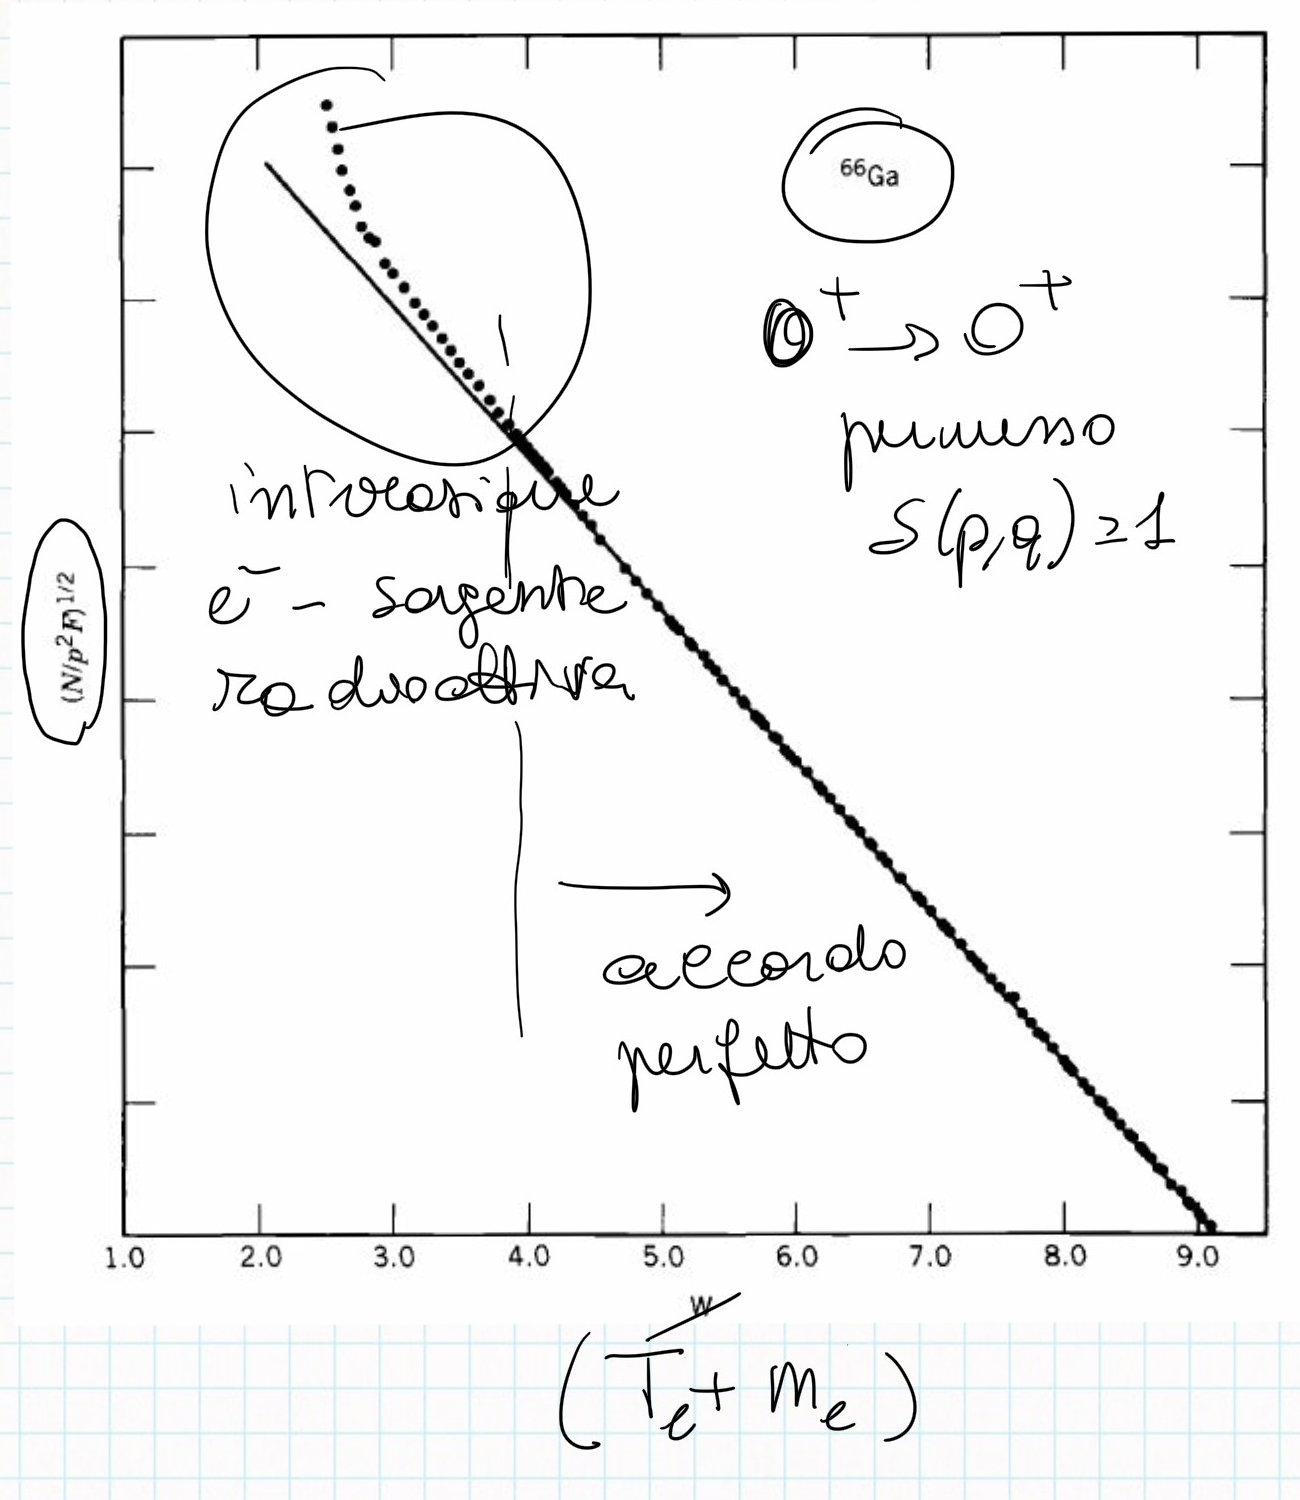 ⁶⁶Ga
0⁺ → 0⁺
permesso
S(p,q)=1
interazione
e⁻ - sorgente
radioattiva
(N/p²F)^1/2
accordo
perfetto
1.0 2.0 3.0 4.0 5.0 6.0 7.0 8.0 9.0
W
(Te + me)